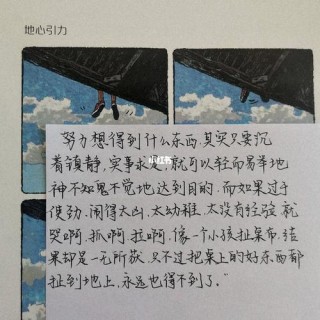 地心引力
小红书
努力想得到什么东西,其实只要沉
着镇静,实事求是,就可以轻而易举地
神不知鬼不觉地达到目的.而如果过于
使劲.闹得太凶.太幼稚.太没有经验.就
哭啊.抓啊.拉啊.像一个小孩扯桌布.结
果却是一无所获.只不过把桌上的好东西都
扯到地上.永远也得不到了."